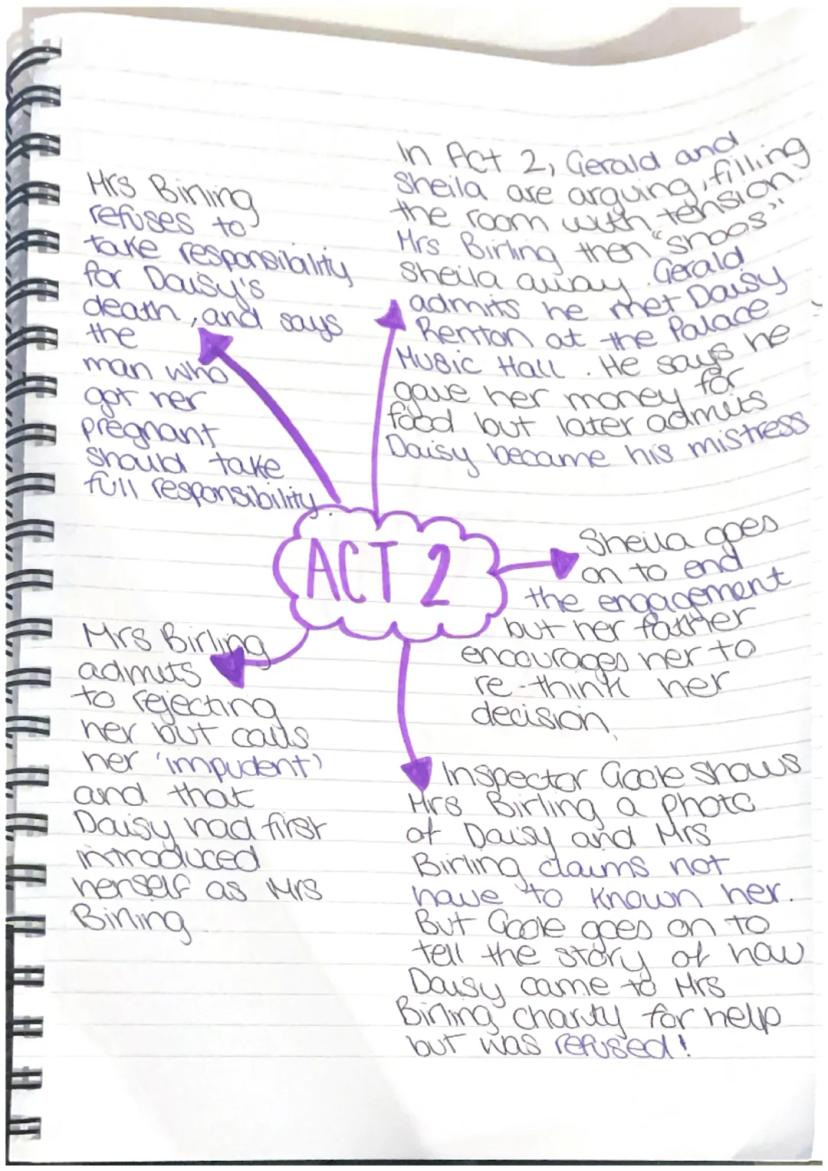 In Act 2, Gerald and
Sheila are arguing, filling
the room with tension.
Mrs Birling then "shoos"
Sheila away. Gerald
admits he met Daisy
Renton at the Palace
Music Hall. He says he
gave her money for
food but later admits
Daisy became his mistress
Mrs Birling
refuses to
take responsibility
for Daisy's
death, and says
the
man who
got her
pregnant
should take
full responsibility.
ACT 2
Sheila goes
on to end
the engagement
but her father
encourages her to
re-think her
decision.
Mrs Birling
admits
to rejecting
her but calls
her 'impudent'
and that
Daisy had first
introduced
herself as Mrs
Birling
Inspector Goole shows
Mrs Birling a photo
of Daisy and Mrs
Birling claims not
have to known her.
But Goole goes on to
tell the story of how
Daisy came to Mrs
Birling charity for help
but was refused!